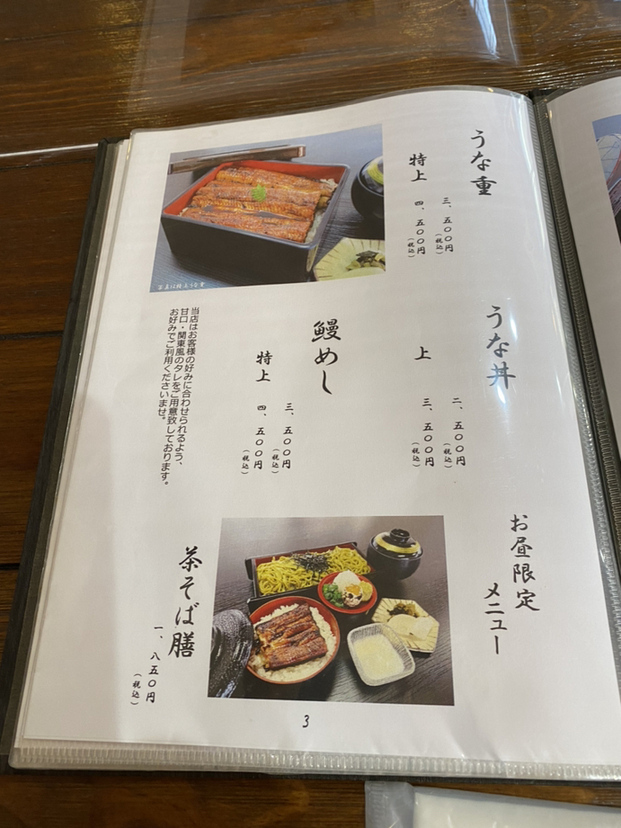 うな重
三、五〇〇円
(税込)
特上
四、五〇〇円
(税込)
うな丼
二、五〇〇円
(税込)
上
三、五〇〇円
(税込)
鰻めし
三、五〇〇円
(税込)
特上
四、五〇〇円
(税込)
当店はお客様の好みに合わせられるよう、
甘口・関東風のタレをご用意致しております。
お好みでご利用くださいませ。
お昼限定
メニュー
茶そば膳
一、八五〇円
(税込)
3